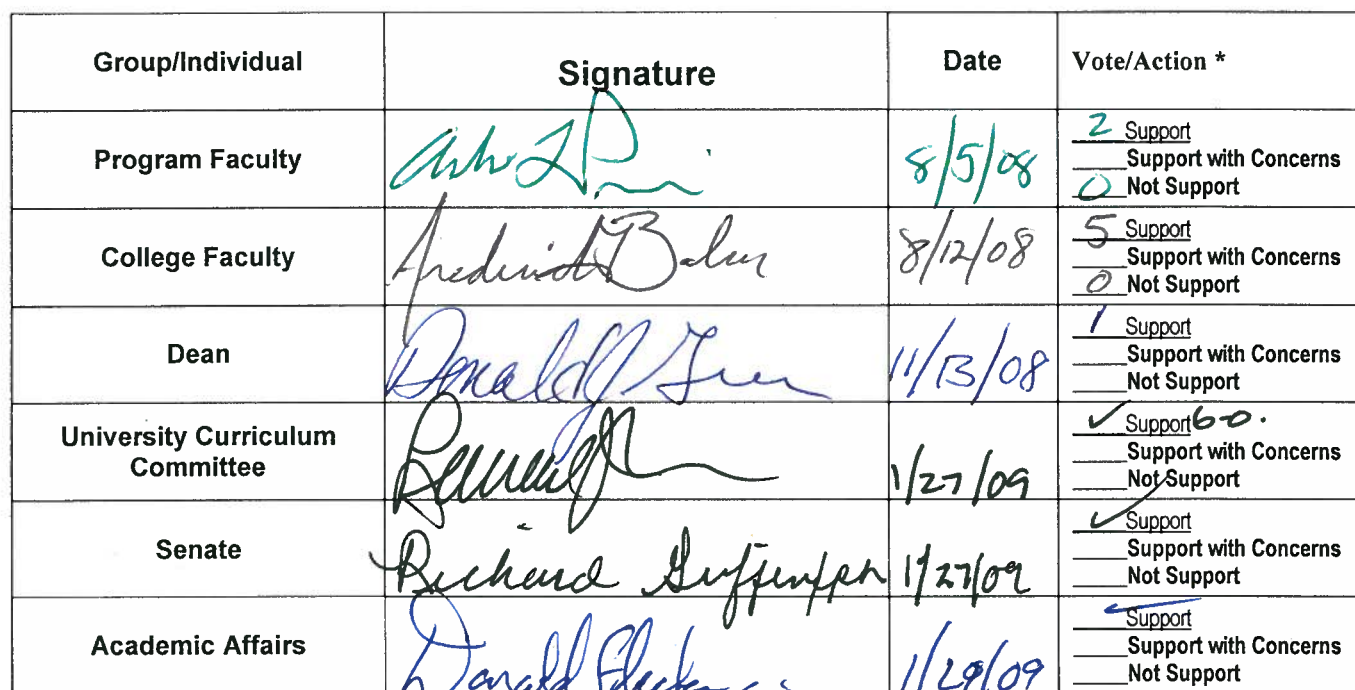 Group/Individual Signature Date Vote/Action *
Program Faculty 8/5/08
2 Support
Support with Concerns
0 Not Support
College Faculty Frederick Baker 8/12/08
5 Support
Support with Concerns
0 Not Support
Dean Donald J. Green 11/13/08
1 Support
Support with Concerns
Not Support
University Curriculum
Committee 1/27/09
✓ Support 6-0.
Support with Concerns
Not Support
Senate Richard 1/27/09
✓ Support
Support with Concerns
Not Support
Academic Affairs Donald 1/29/09
✓ Support
Support with Concerns
Not Support